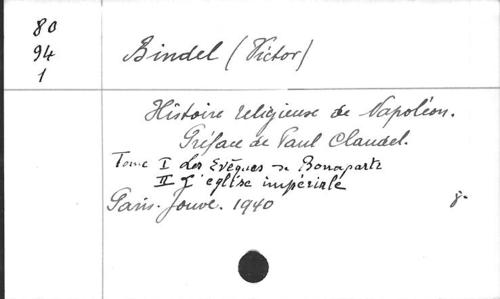 80
94
1
Bindel (Victor)
Histoire religieuse de Napoléon.
Préface de Paul Claudel.
Tome I Les Evêques de Bonaparte
II L'église impériale
Paris. Jouve. 1940 8.